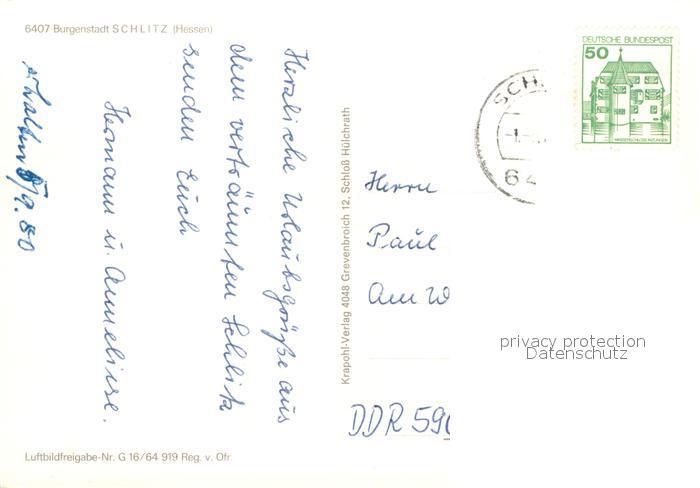 6407 Burgenstadt SCHLITZ (Hessen)
Herzliche Urlaubsgrüße aus
dem verträumten Schlitz
senden Euch
Hermann u. Anneliese.
erhalten 5/9.80
Luftbildfreigabe-Nr. G 16/64 919 Reg. v. Ofr.
Krapohl-Verlag 4048 Grevenbroich 12, Schloß Hülchrath
SCHL
64
DEUTSCHE BUNDESPOST
50
WASSERSCHLOSS INZLINGEN
Herrn
Paul
Am W
DDR 590
privacy protection
Datenschutz